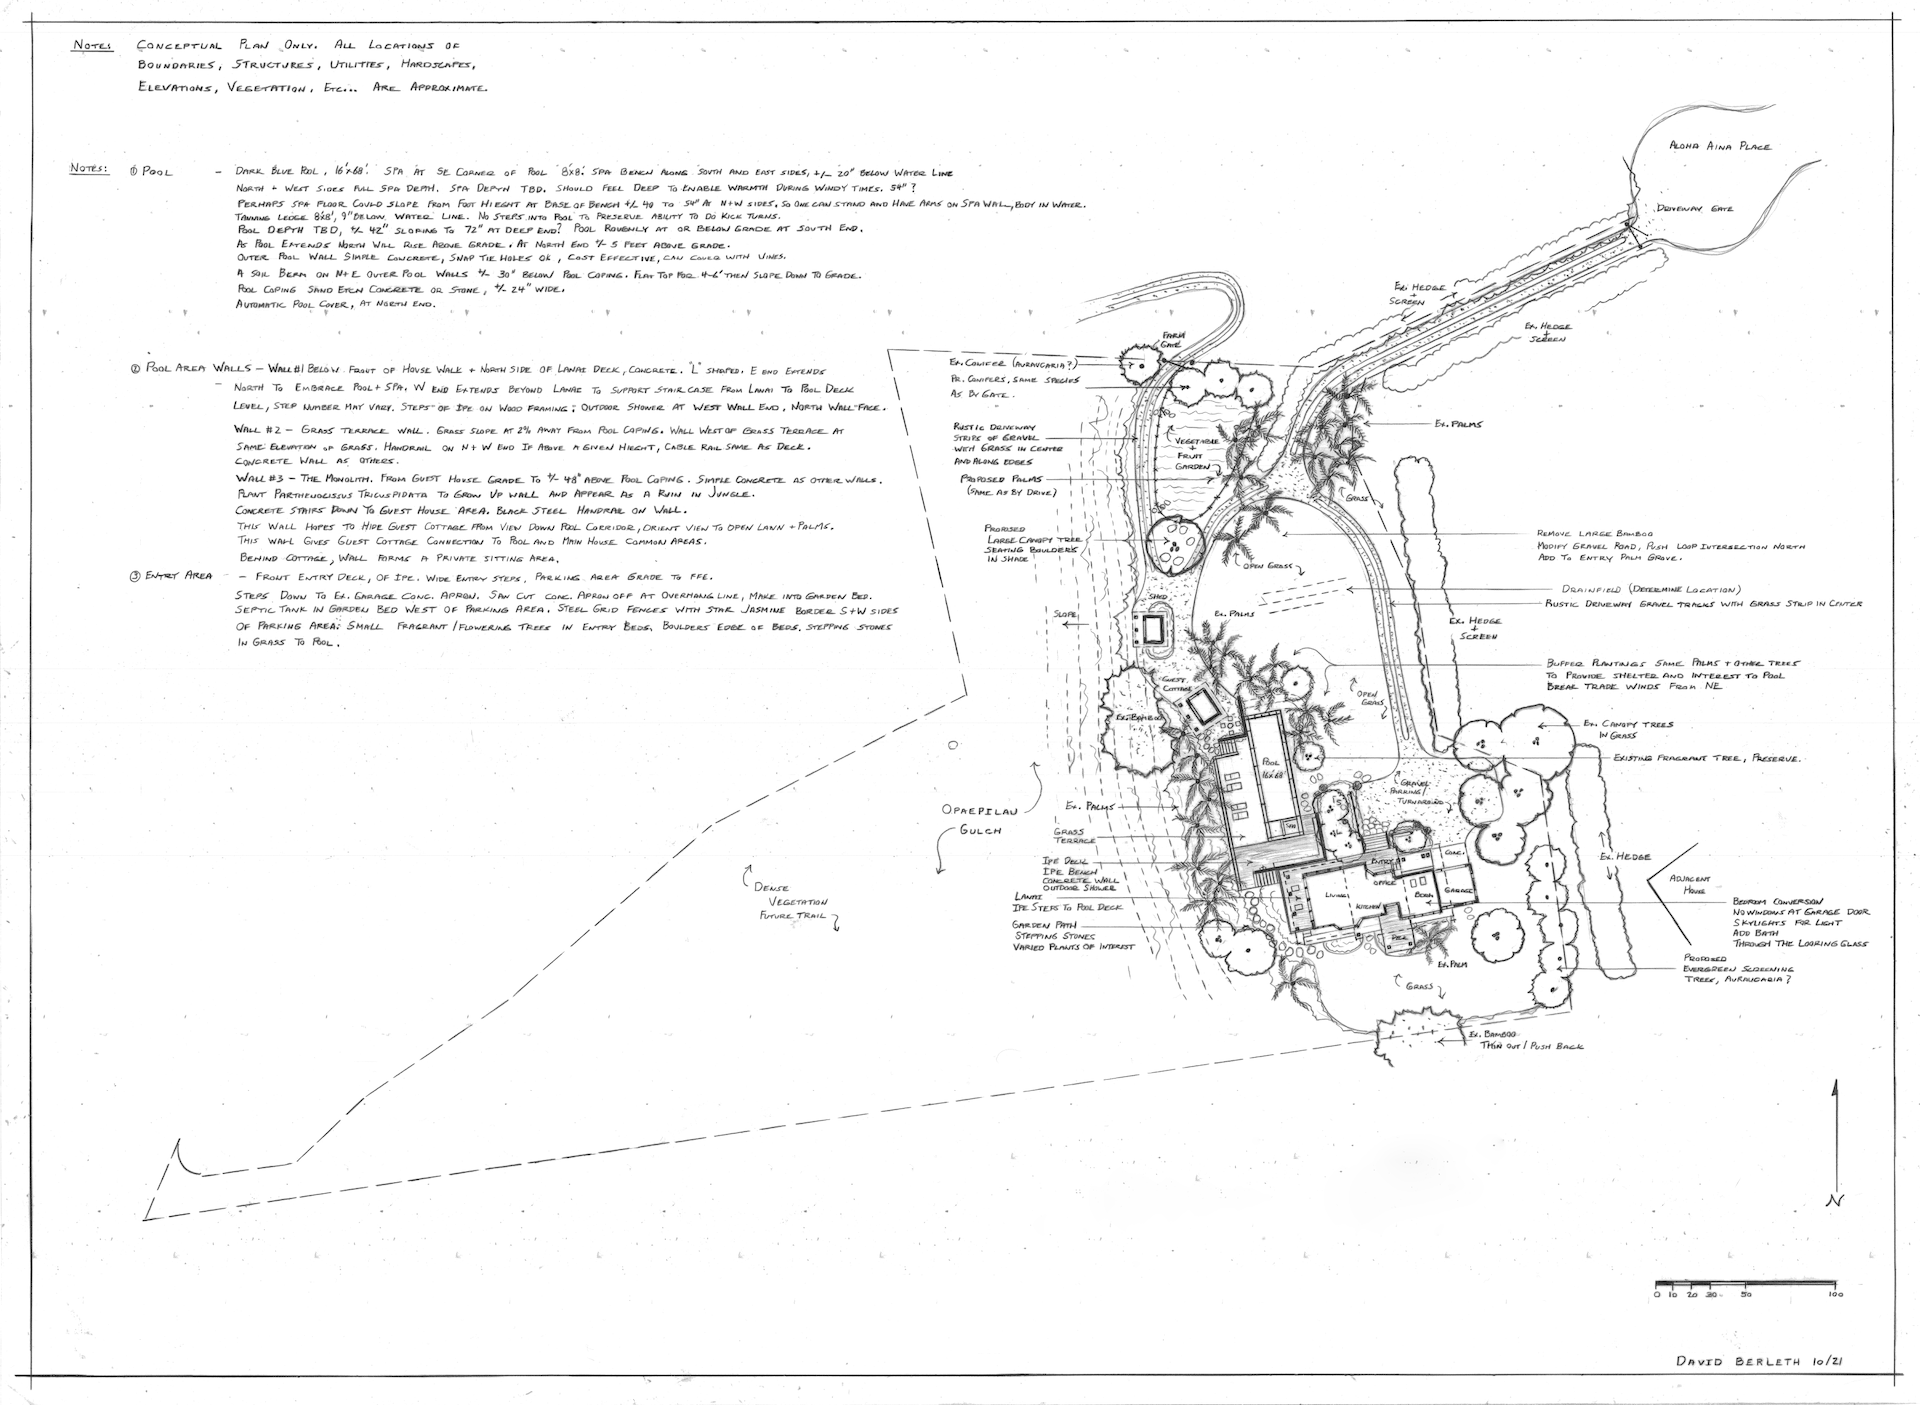 NOTES CONCEPTUAL PLAN ONLY. ALL LOCATIONS OF
BOUNDARIES, STRUCTURES, UTILITIES, HARDSCAPES,
ELEVATIONS, VEGETATION, ETC... ARE APPROXIMATE.
NOTES: ① POOL - DARK BLUE POOL, 16'x68'. SPA AT SE CORNER OF POOL 8'x8'. SPA BENCH ALONG SOUTH AND EAST SIDES, +/- 20" BELOW WATER LINE
NORTH + WEST SIDES FULL SPA DEPTH. SPA DEPTH TBD. SHOULD FEEL DEEP TO ENABLE WARMTH DURING WINDY TIMES. 54"?
PERHAPS SPA FLOOR COULD SLOPE FROM FOOT HIEGHT AT BASE OF BENCH +/- 40 TO 54" AT N+W SIDES, SO ONE CAN STAND AND HAVE ARMS ON SPA WALL, BODY IN WATER.
TANNING LEDGE 8'x8', 9" BELOW WATER LINE. NO STEPS INTO POOL TO PRESERVE ABILITY TO DO KICK TURNS.
POOL DEPTH TBD, +/- 42" SLOPING TO 72" AT DEEP END? POOL ROUGHLY AT OR BELOW GRADE AT SOUTH END.
AS POOL EXTENDS NORTH WILL RISE ABOVE GRADE. AT NORTH END +/- 5 FEET ABOVE GRADE.
OUTER POOL WALL SIMPLE CONCRETE, SNAP TIE HOLES OK, COST EFFECTIVE, CAN COVER WITH VINES.
A SOIL BERM ON N+E OUTER POOL WALLS +/- 30" BELOW POOL COPING. FLAT TOP FOR 4-6' THEN SLOPE DOWN TO GRADE.
POOL COPING SAND ETCH CONCRETE OR STONE, +/- 24" WIDE.
AUTOMATIC POOL COVER, AT NORTH END.
② POOL AREA WALLS - WALL #1 BELOW FRONT OF HOUSE WALK + NORTH SIDE OF LANAI DECK, CONCRETE. "L" SHAPED. E END EXTENDS
- NORTH TO EMBRACE POOL + SPA, W END EXTENDS BEYOND LANAI TO SUPPORT STAIRCASE FROM LANAI TO POOL DECK
LEVEL, STEP NUMBER MAY VARY. STEPS OF IPE ON WOOD FRAMING; OUTDOOR SHOWER AT WEST WALL END, NORTH WALL FACE.
WALL #2 - GRASS TERRACE WALL. GRASS SLOPE AT 2% AWAY FROM POOL COPING. WALL WEST OF GRASS TERRACE AT
SAME ELEVATION OF GRASS. HANDRAIL ON N+W END IF ABOVE A GIVEN HIEGHT, CABLE RAIL SAME AS DECK.
CONCRETE WALL AS OTHERS.
WALL #3 - THE MONOLITH. FROM GUEST HOUSE GRADE TO +/- 48" ABOVE POOL COPING. SIMPLE CONCRETE AS OTHER WALLS.
PLANT PARTHENOCISSUS TRICUSPIDATA TO GROW UP WALL AND APPEAR AS A RUIN IN JUNGLE.
CONCRETE STAIRS DOWN TO GUEST HOUSE AREA. BLACK STEEL HANDRAIL ON WALL.
THIS WALL HOPES TO HIDE GUEST COTTAGE FROM VIEW DOWN POOL CORRIDOR, ORIENT VIEW TO OPEN LAWN + PALMS.
THIS WALL GIVES GUEST COTTAGE CONNECTION TO POOL AND MAIN HOUSE COMMON AREAS.
BEHIND COTTAGE, WALL FORMS A PRIVATE SITTING AREA.
③ ENTRY AREA - FRONT ENTRY DECK, OF IPE. WIDE ENTRY STEPS, PARKING AREA GRADE TO FFE.
STEPS DOWN TO EX. GARAGE CONC. APRON. SAW CUT CONC. APRON OFF AT OVERHANG LINE, MAKE INTO GARDEN BED.
SEPTIC TANK IN GARDEN BED WEST OF PARKING AREA. STEEL GRID FENCES WITH STAR JASMINE BORDER S+W SIDES
OF PARKING AREA. SMALL FRAGRANT/FLOWERING TREES IN ENTRY BEDS, BOULDERS EDGE OF BEDS. STEPPING STONES
IN GRASS TO POOL.
ALOHA AINA PLACE
DRIVEWAY GATE
EX. HEDGE
+
SCREEN
EX. HEDGE
+
SCREEN
FARM
GATE
EX. CONIFER (AURAUCARIA?)
PR. CONIFERS, SAME SPECIES
AS BY GATE.
RUSTIC DRIVEWAY
STRIPS OF GRAVEL
WITH GRASS IN CENTER
AND ALONG EDGES
PROPOSED PALMS
(SAME AS BY DRIVE)
VEGETABLE
+
FRUIT
GARDEN
EX. PALMS
GRASS
PROPOSED
LARGE CANOPY TREE
SEATING BOULDERS
IN SHADE
OPEN GRASS
REMOVE LARGE BAMBOO
MODIFY GRAVEL ROAD, PUSH LOOP INTERSECTION NORTH
ADD TO ENTRY PALM GROVE.
DRAINFIELD (DETERMINE LOCATION)
RUSTIC DRIVEWAY GRAVEL TRACKS WITH GRASS STRIP IN CENTER
SLOPE
SHED
EX. PALMS
EX. HEDGE
+
SCREEN
BUFFER PLANTINGS SAME PALMS + OTHER TREES
TO PROVIDE SHELTER AND INTEREST TO POOL
BREAK TRADE WINDS FROM NE
GUEST
COTTAGE
OPEN
GRASS
EX. BAMBOO
EX. CANOPY TREES
IN GRASS
EXISTING FRAGRANT TREE, PRESERVE.
POOL
16x68
GRAVEL
PARKING/
TURNAROUND
OPAEPILAU
GULCH
EX. PALMS
SPA
GRASS
TERRACE
IPE DECK
IPE BENCH
CONCRETE WALL
OUTDOOR SHOWER
LANAI
IPE STEPS TO POOL DECK
GARDEN PATH
STEPPING STONES
VARIED PLANTS OF INTEREST
ENTRY
CONC.
OFFICE
LIVING
KITCHEN
BDRM
GARAGE
DECK
EX. PALM
GRASS
EX. HEDGE
ADJACENT
HOUSE
BEDROOM CONVERSION
NO WINDOWS AT GARAGE DOOR
SKYLIGHTS FOR LIGHT
ADD BATH
THROUGH THE LOOKING GLASS
PROPOSED
EVERGREEN SCREENING
TREES, AURAUCARIA?
DENSE
VEGETATION
FUTURE TRAIL
EX. BAMBOO
THIN OUT / PUSH BACK
N
0 10 20 30 50 100
DAVID BERLETH 10/21